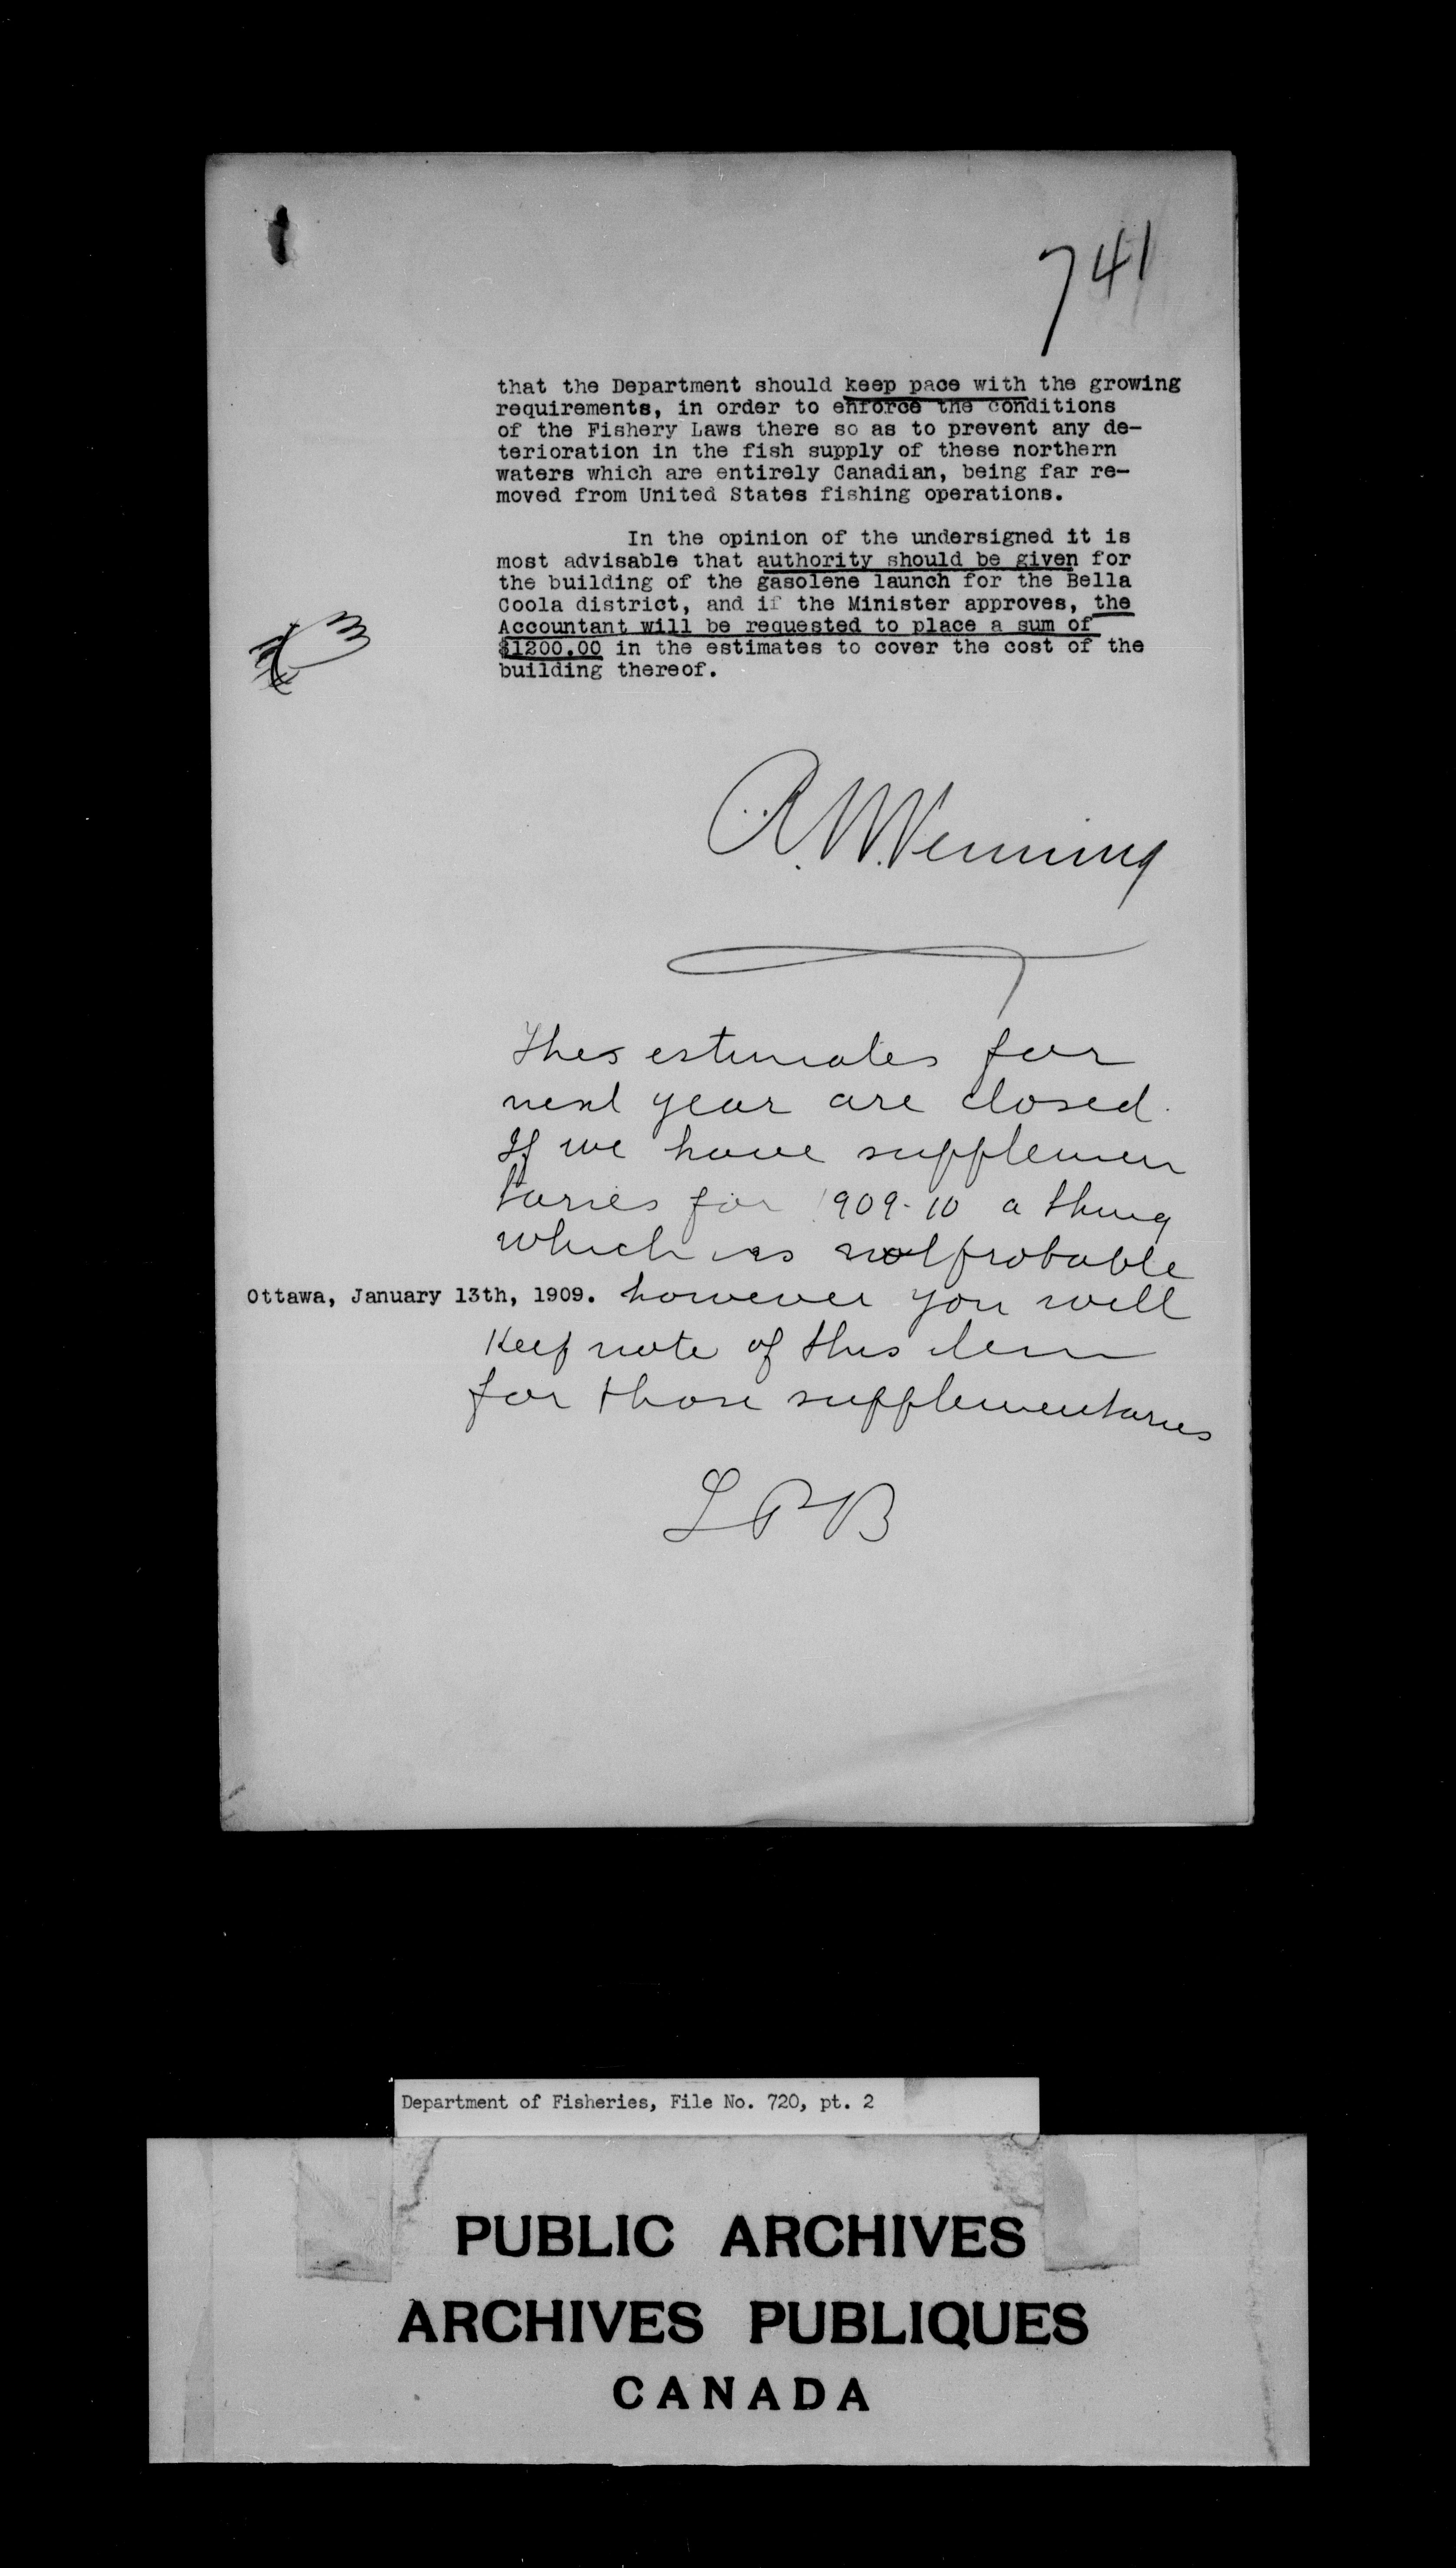 741
that the Department should keep pace with the growing
requirements, in order to enforce the conditions
of the Fishery Laws there so as to prevent any de-
terioration in the fish supply of these northern
waters which are entirely Canadian, being far re-
moved from United States fishing operations.
In the opinion of the undersigned it is
most advisable that authority should be given for
the building of the gasolene launch for the Bella
Coola district, and if the Minister approves, the
Accountant will be requested to place a sum of
$1200.00 in the estimates to cover the cost of the
building thereof.
R.N.Venning
The estimates for
next year are closed.
If we have supplemen
taries for 1909-10 a thing
which is not probable
Ottawa, January 13th, 1909. however you will
Keep note of this item
for those supplementaries
LPB
Department of Fisheries, File No. 720, pt. 2
PUBLIC ARCHIVES
ARCHIVES PUBLIQUES
CANADA